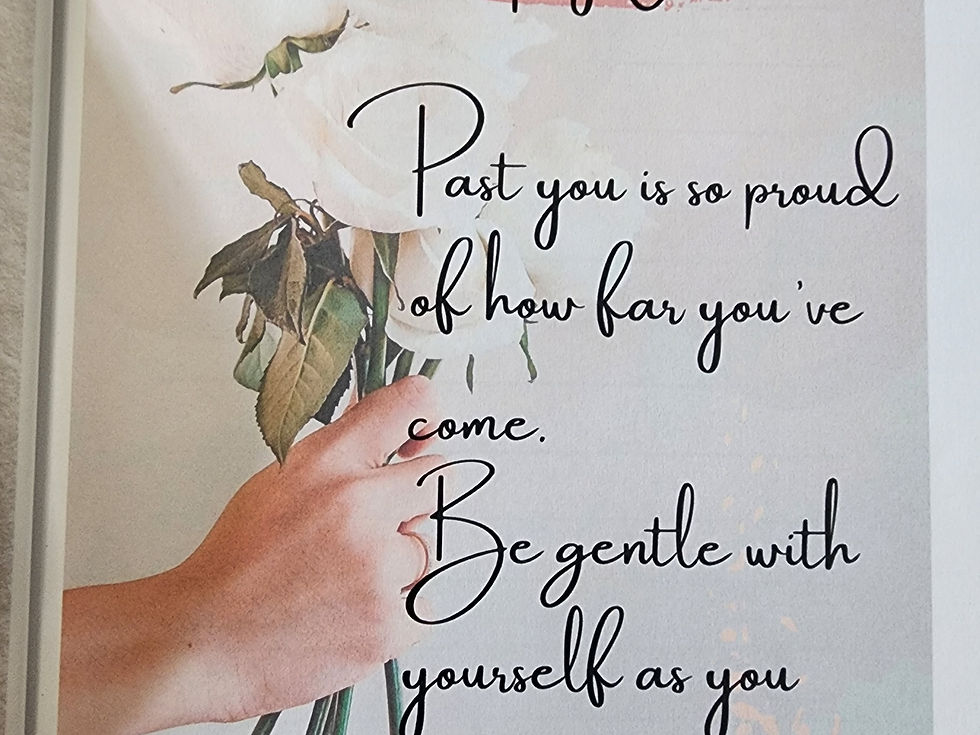 Past you is so proud
of how far you've
come.
Be gentle with
yourself as you